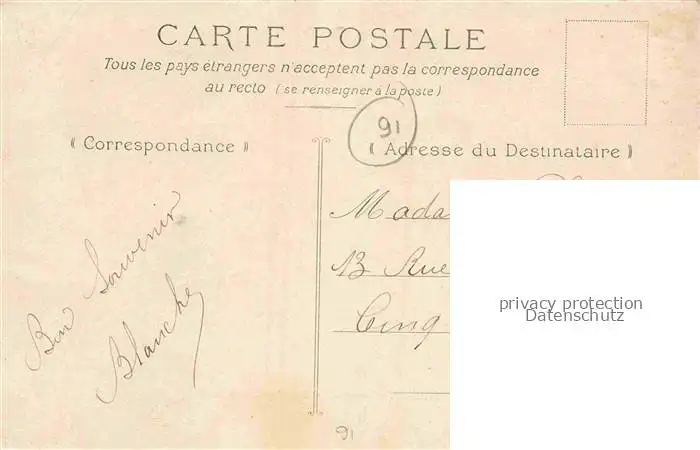 CARTE POSTALE
Tous les pays étrangers n'acceptent pas la correspondance
au recto (se renseigner à la poste)
91
Correspondance
Adresse du Destinataire
Bon Souvenir
Blanche
Mada
13 Rue
Cinq
privacy protection
Datenschutz
91